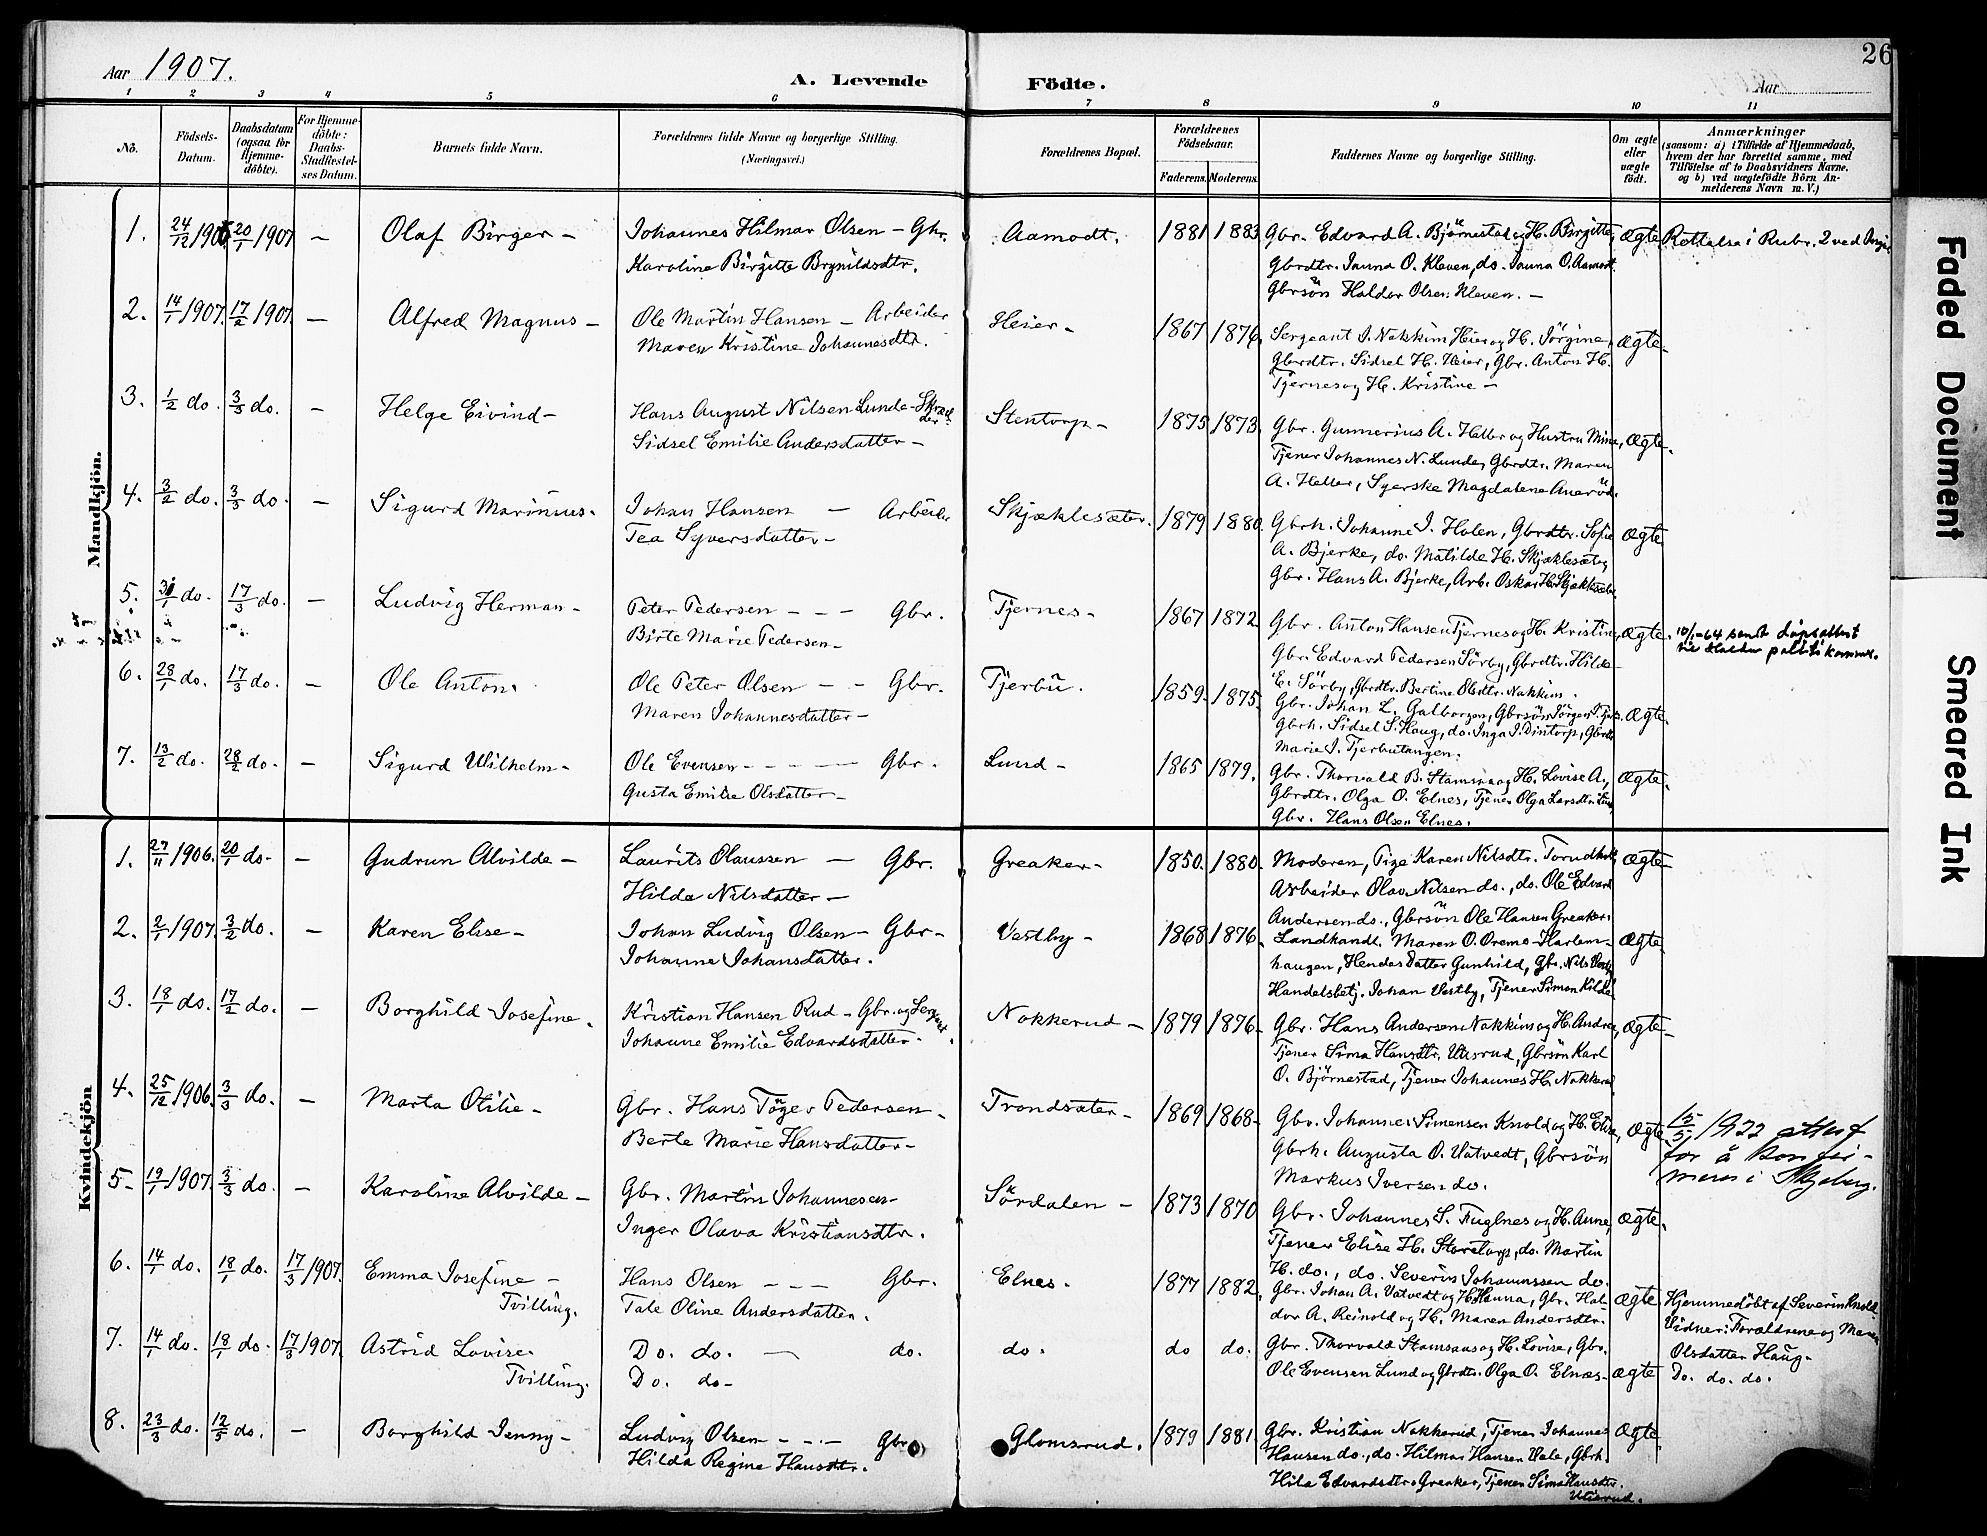 Aar 1907. A. Levende Födte. Aar 26
1 2 3 4 5 6 7 8 9 10 11
Nö. Födsels-Datum. Daabsdatum (ogsaa for Hjemme-döbte). For Hjemme-döbte: Daabs-Stadfæstel-ses Datum. Barnets fulde Navn. Forældrenes fulde Navne og borgerlige Stilling. (Næringsvei.) Forældrenes Bopæl. Forældrenes Födselsaar. Faderens. Moderens. Faddernes Navne og borgerlige Stilling. Om ægte eller uægte födt. Anmærkninger (saasom: a) i Tilfælde af Hjemmedaab, hvem der har forrettet samme, med Tilföielse af to Daabsvidners Navne. og b) ved uægtefödte Börn An-melderens Navn m. V.)
Mandkjön.
1. 24/12 1906 20/1 1907 – Olaf Birger – Johannes Hilmar Olsen – Gbr. Aamodt. 1881 1883 Gbr. Edvard A. Björnestad og H. Birgitte, ægte Rettelse i Rubr. 2 ved
Karoline Birgitte Brynildsdtr. Gbrdtr. Janna O. Kleven, do. Janna O. Aamodt
Gbrsön Haldor Olsen Kleven. –
2. 14/1 1907. 17/2 1907. – Alfred Magnus – Ole Martin Hansen – Arbeider Heier – 1867 1876. Sergeant J. Nakkim Heier og H. Jörgine, ægte.
Maren Kristine Johannesdtr. Gbrdtr. Sidsel H. Heier, Gbr. Anton H.
Tjernes og H. Kristine –
3. 1/2 do. 3/3 do. – Helge Eivind – Hans August Nilsen Lunde – Skræd-der Stentorp – 1875 1873. Gbr. Gunnerius A. Heller og Hustru Mina, ægte.
Sidsel Emilie Andersdatter – Tjener Johannes N. Lunde, Gbrdtr. Maren
A. Heller, Syerske Magdalene
4. 3/2 do. 3/3 do. – Sigurd Marinius. Johan Hansen – Arbeider Skjæklesæter. 1879 1880. Gbrh. Johanne J. Holen, Gbrdtr. Sofie ægte
Tea Syversdatter – A. Bjerke, do. Matilde H. Skjæklesæter,
Gbr. Hans A. Bjerke, Arb. Oskar H. Skjæklesæter
5. 31/1 do. 17/3 do. – Ludvig Herman – Peter Pedersen – – – Gbr. Tjernes – 1867 1872 Gbr. Anton Hansen Tjernes og H. Kristine, ægte. 10/1-64 sendt dåpsattest
Birte Marie Pedersen – Gbr. Edvard Pedersen Sörby, Gbrdtr. Hilda til Halden politikammer.
E. Sörby, Gbrdtr. Bertine Olsdtr. Nakkim.
6. 28/1 do. 17/3 do. – Ole Anton. Ole Peter Olsen – – Gbr. Tjerbu. 1859. 1875. Gbr. Johan L. Galborgen, Gbrsön Jörgen ægte.
Maren Johannesdatter – Gbrh. Sidsel S. Haug, do. Inga J. Dintorp, Gbrdtr.
Marie J. Tjerbutangen.
7. 13/2 do. 28/2 do. – Sigurd Wilhelm – Ole Evensen – – – – Gbr. Lund – 1865 1879. Gbr. Thorvald B. Stamsaas og H. Lovise A., ægte.
Gusta Emilie Olsdatter – Gbrdtr. Olga O. Elnes, Tjener Olga Larsdtr. Lund,
Gbr. Hans Olsen Elnes.
Kvindekjön
1. 27/11 1906. 20/1 do. – Gudrun Alvilde – Laurits Olaussen – Gbr. Greaker – 1850. 1880. Moderen, Pige Karen Nilsdtr. Torudholt, ægte
Hilda Nilsdatter – Arbeider Olav Nilsen do., do. Ole Edvard
Andersen do., Gbrsön Ole Hansen Greaker.
2. 2/1 1907. 3/2 do. – Karen Elise – Johan Ludvig Olsen – Gbr – Vestby – 1868 1876. Landhandl. Maren O. Oremo Harlem- ægte
Johanne Johansdatter. haugen, Hendes Datter Gunhild, Gbr. Nils Vestby
Handelsbetj. Johan Vestby, Tjener Simon Kilde
3. 18/1 do. 17/2 do. – Borghild Josefine. Kristian Hansen Rud – Gbr. og Sergeant. Nakkerud – 1879 1876. Gbr. Hans Andersen Nakkim og H. Andrea, ægte
Johanne Emilie Edvardsdatter – Tjener Sima Hansdtr. Utisrud, Gbrsön Karl
O. Björnestad, Tjener Johannes H. Nakkerud
4. 25/12 1906. 3/3 do. – Marta Otilie – Gbr. Hans Töger Pedersen – Trondsæter – 1869 1868 – Gbr. Johannes Simensen Knold og H. Elise, ægte 15/5 1922 attest
Berte Marie Hansdatter – Gbrh. Augusta O. Vatvedt, Gbrsön for å konfir-
Markus Iversen do. meres i Skjeberg.
5 – 19/1 1907. 3/3 do. – Karoline Alvilde – Gbr. Martin Johannesen – Sördalen – 1873 1870 Gbr. Johannes S. Fuglnes og H. Anne, ægte.
Inger Olava Kristiansdtr. Tjener Elise H. Storetorp, do. Martin
H. do., do. Severin Johannssen do.
6. 14/1 do. 18/1 do. 17/3 1907. Emma Josefine – Hans Olsen – – – Gbr. Elnes. 1877 1882. Gbr. Johan A. Vatvedt og H. Hanna, Gbr. Hal- ægte Hjemmedöbt af Severin Knold
Tvilling. Tale Oline Andersdatter. dor A. Reinold og H. Maren Andersdtr. Vidner: Forældrene og Maren
7. 14/1 do. 18/1 do. 17/3 1907. Astrid Lovise. Do. do. – do. do. do do. Gbr. Thorvald Stamsaas og H. Lovise, Gbr. Olsdatter Haug.
Tvilling. Do. do – Ole Evensen Lund og Gbrdtr. Olga O. Elnæs – ægte Do. do. do.
8. 23/3 do. 12/5 do. – Borghild Jenny – Ludvig Olsen – – – Gbr Glomsrud. 1879 1881 Gbr. Kristian Nakkerud, Tjener Johannes ægte.
Hilda Regine Hansdtr. Hansen do., do. Hilmar Hansen Vale, Gbrh.
Hilda Edvardsdtr. Greaker, Tjener Sima Hansdtr.
Utisrud.
Faded Document
Smeared Ink